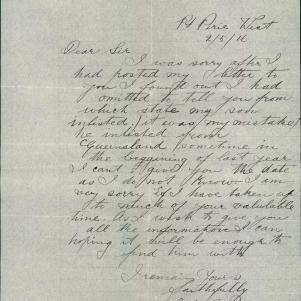 Pt Pirie West
2/5/16
Dear Sir
I was sorry after I
had posted my letter to
you I found out I had
omitted to tell you from
which state my son
inlisted / it was my mistake
he inlisted from
Queensland sometime in
the beggining of last year
I cant give you the date
as I do not know I am
very sorry if I have taken up
to much of your valutable
time. As I wish to give you
all the information I can
hoping it will be enough to
find him with
I remain Yours
faithfully